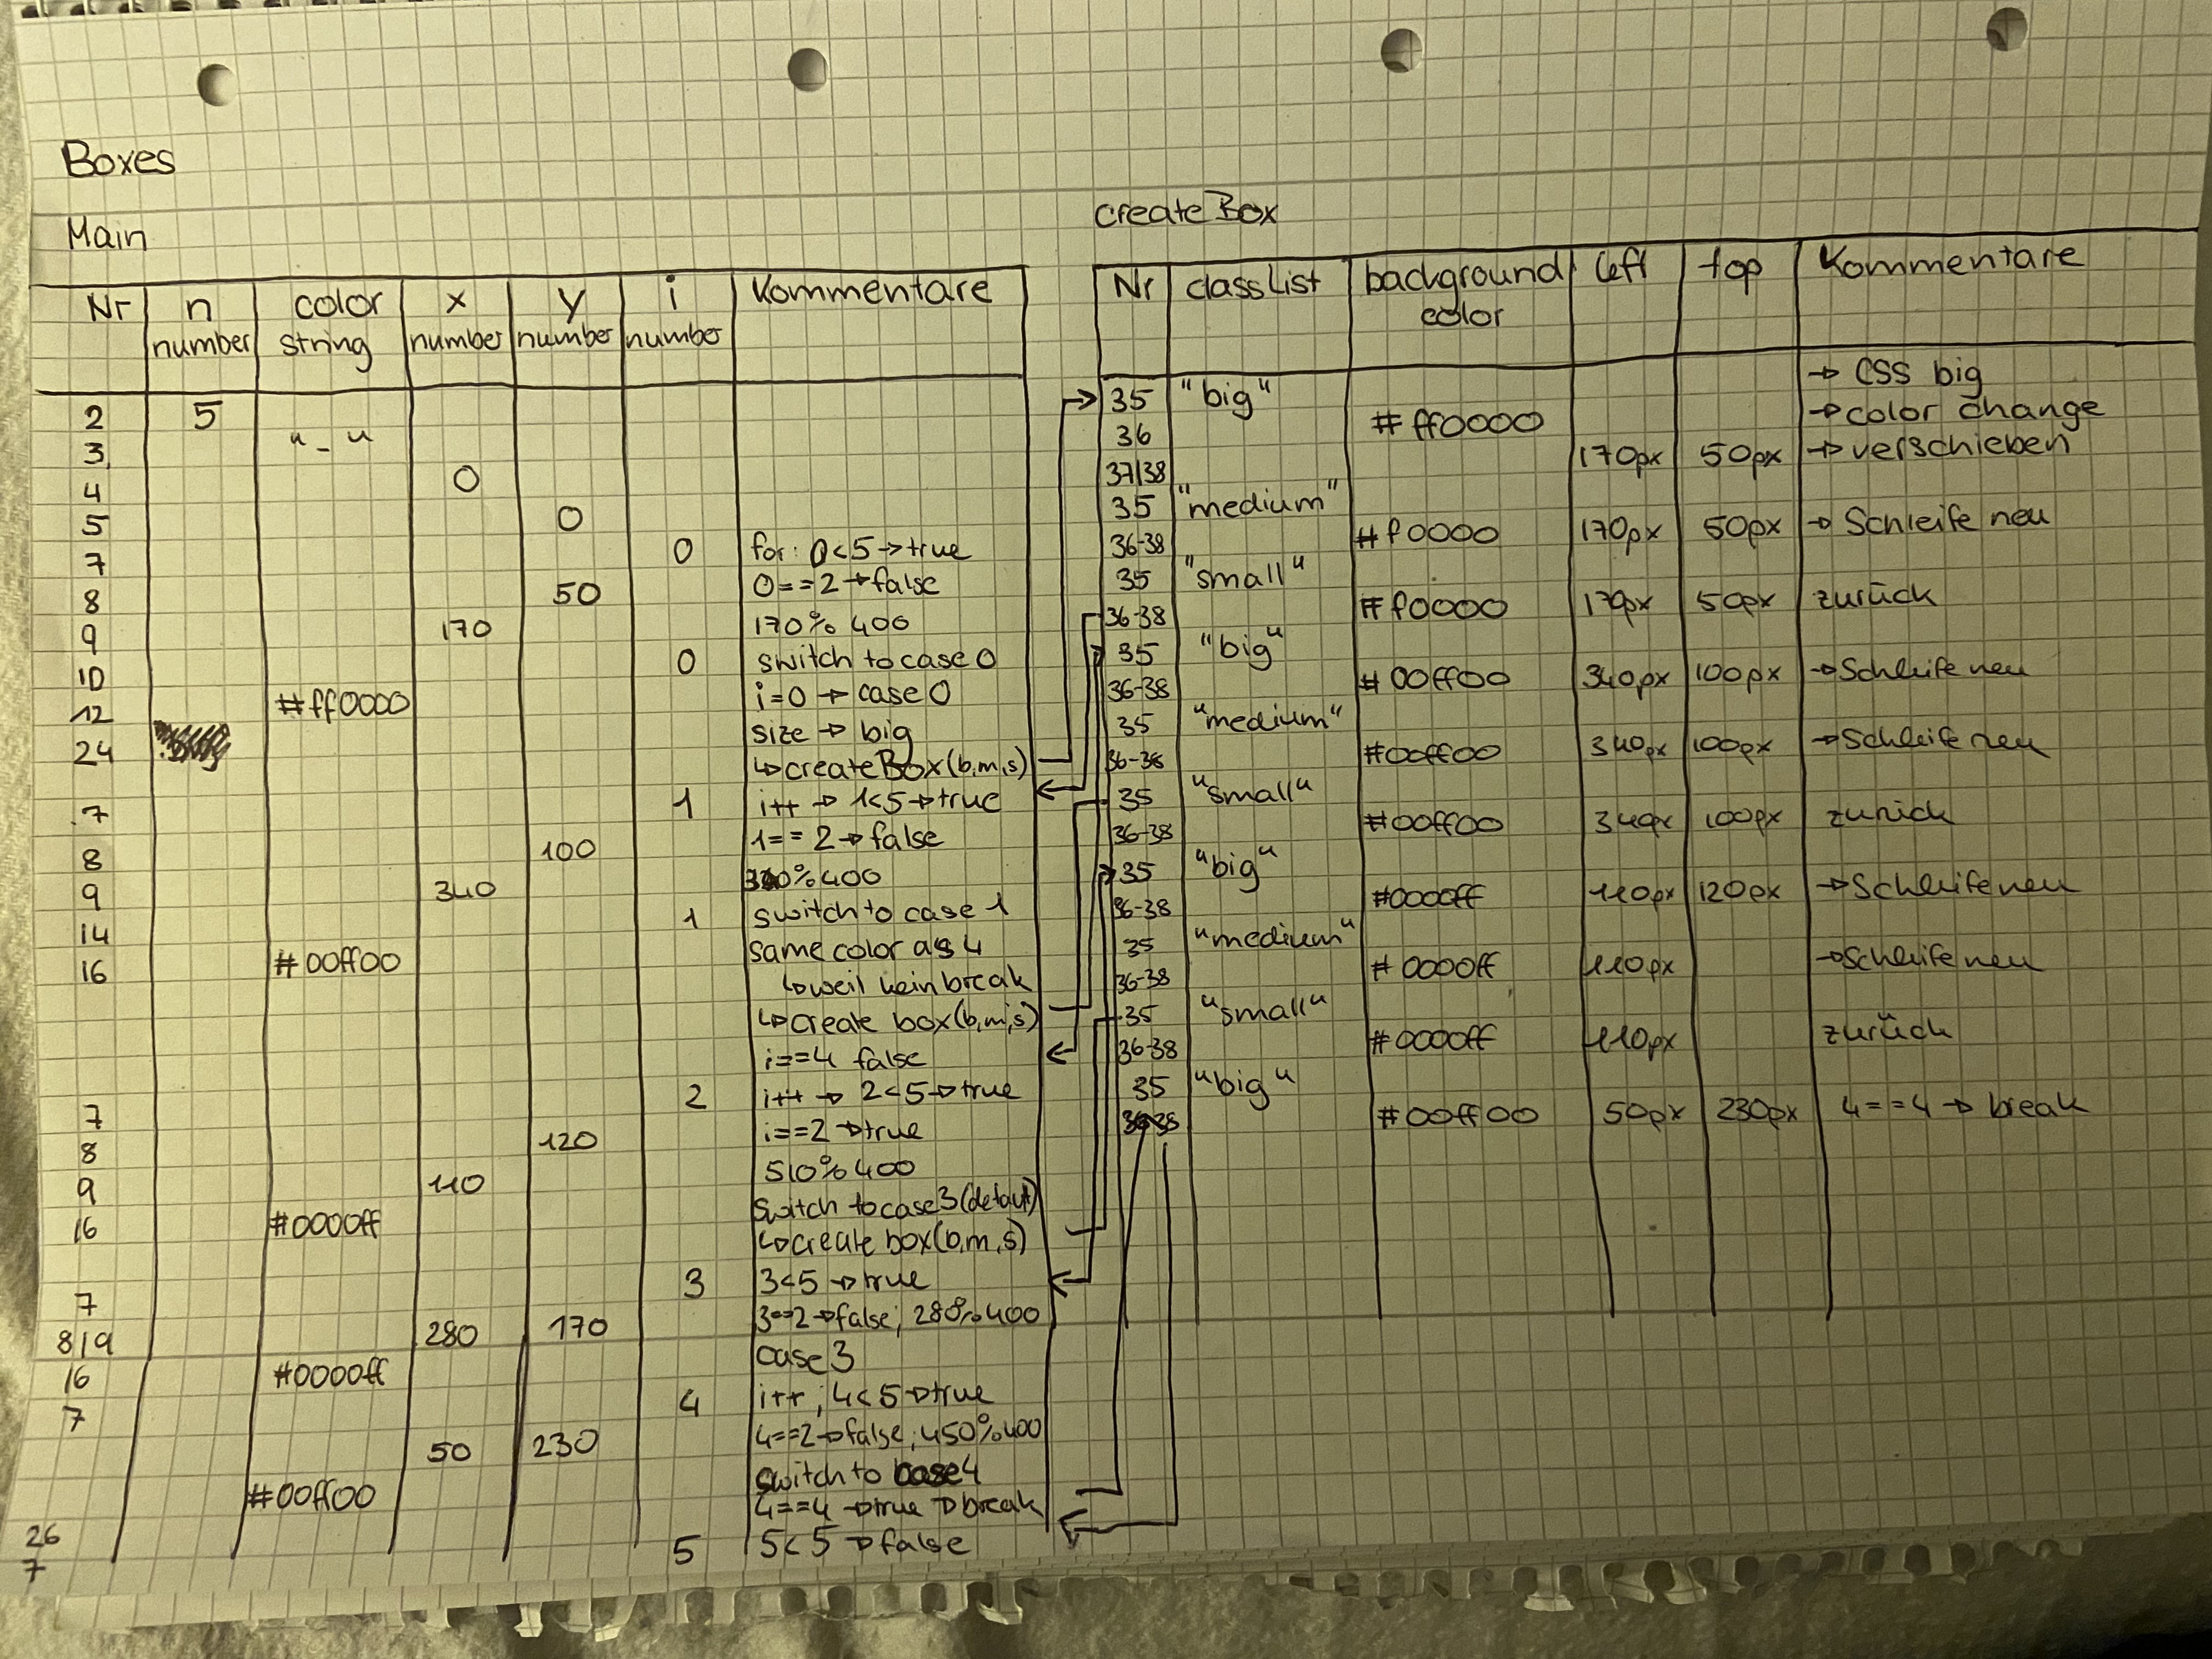 Boxes
Main
Nr n color x y i Kommentare
number string number number number
2 5
3 "-"
4 0
5 0
7 0 for: 0<5→true
8 50 0==2→false
9 170 170%400
10 0 switch to case 0
12 #ff0000 i=0 → case 0
24 size → big
↳createBox(b,m,s)
7 1 i++ → 1<5→true
8 100 1==2→false
9 340 340%400
14 1 switch to case 1
16 #00ff00 same color as 4
↳weil kein break
↳create box(b,m,s)
i==4 false
7 2 i++ → 2<5→true
8 120 i==2→true
9 110 510%400
16 #0000ff switch to case 3 (default)
↳create box(b,m,s)
7 3 3<5→true
8/9 280 170 3==2→false, 280%400
16 #0000ff case 3
7 4 i++, 4<5→true
50 230 4==2→false, 450%400
#00ff00 switch to case 4
26 4==4→true→break
7 5 5<5→false
createBox
Nr classList background color left top Kommentare
35 "big" → CSS big
36 #ff0000 → color change
37/38 170px 50px → verschieben
35 "medium"
36-38 #f00000 170px 50px → Schleife neu
35 "small"
36-38 #f00000 170px 50px zurück
35 "big"
36-38 #00ff00 340px 100px → Schleife neu
35 "medium"
36-38 #00ff00 340px 100px → Schleife neu
35 "small"
36-38 #00ff00 340px 100px zurück
35 "big"
36-38 #0000ff 110px 120px → Schleife neu
35 "medium"
36-38 #0000ff 110px → Schleife neu
35 "small"
36-38 #0000ff 110px zurück
35 "big"
36-38 #00ff00 50px 230px 4==4 → break